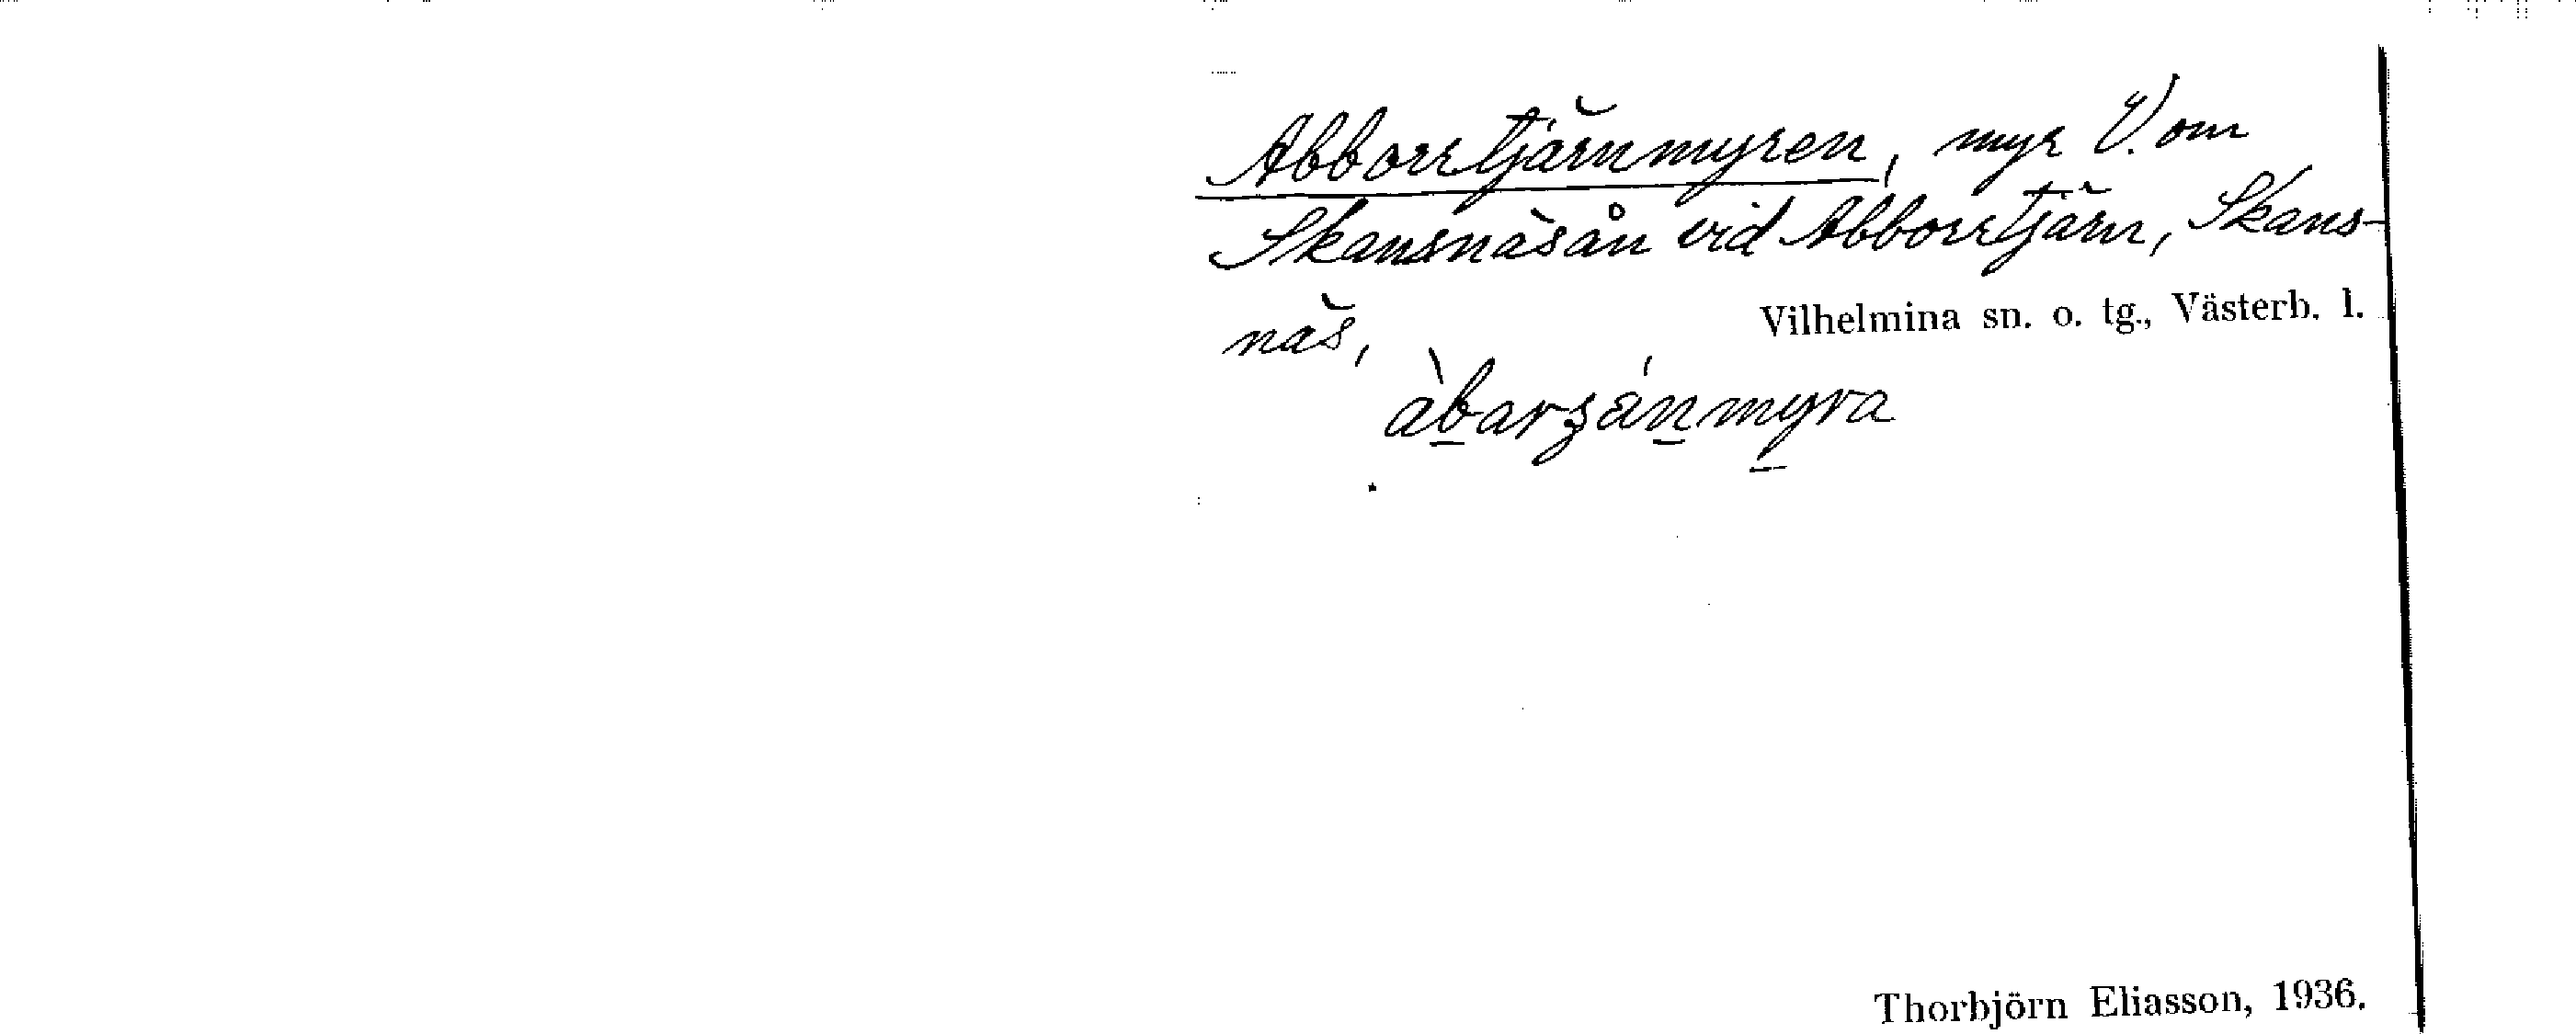 Abborrtjärnmyren, myr V. om
Skansnäsån vid Abborrtjärn, Skans-
näs,
Vilhelmina sn. o. tg., Västerb. l.
àbarʒánmyra
Thorbjörn Eliasson, 1936.